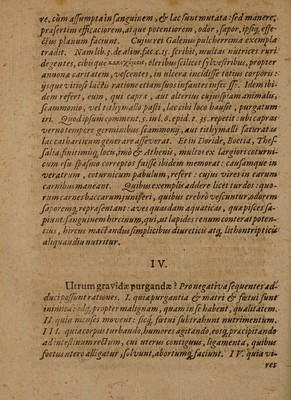 re, cùm assumpta in sanguinem, & lac sunt mutata: sed manere,
præsertim efficaciorem, atque potentiorem, odor, sapor, ipsíq, effe-
ctus planum faciunt. Cujus rei Galenus pulcherrima exempla
tradit. Nam lib. 3. de alim. fac. c. 15. scribit, multas nutrices ruri
degentes, cibúque oleribus scilicet sylvestribus, propter
annona caritatem, vescentes, in ulcera incidisse ratius corporis:
ysque vitiosi lactis ratione etiam suos infantes infecisse. Idem ibi-
dem refert, euro, qui capra, aut alterius cujuspiam animalis,
scammonio, vel tithymallo pasti, lac cibi loco hausit, purgatum
iri. Quod ipsum comment. 5. in l. 6. epid. t. 35. repetit: ubi capras
verno tempore germinibus scammonij, aut tithymalli saturatas
lac catharticum generare asseverat. Et in Doride, Bœotia, Thes-
salia, finitimisq, locis, imò & Athenis, multos ex largiori coturni-
cum esu spasmo correptos fuisse ibidem memorat: causamque in
veratrum, coturnicum pabulum, refert: cujus vires in earum
carnibus maneant. Quibus exemplis addere licet turdos: quo-
rum carnes baccarum juniperi, quibus crebrò vescuntur, odorem
saporemq, repræsentant: aves quasdam aquaticas, quæ pisces sa-
piunt: sanguinem hircinum, qui, ut lapides renum conterat poten-
tius, hircus mactandus simplicibus diureticis atq, lithontripticis
aliquandiu nutritur.
IV.
Utrum gravidæ purgandæ? Pro negativa sequenter ad-
duci possunt rationes. I. quia purgantia & matri & fœtui sunt
inimica: idq, propter malignam, quam in se habent, qualitatem.
II. quia menses movent: sicq, fœtui subtrahunt nutrimentum.
III. quia corpus turbando, humores agitando, eosq, præcipitando
ad intestinum rectum, cui uterus contiguus, ligamenta, quibus
fœtus utero alligatur, solvunt, abortumq, faciunt. IV. quia vi-
res